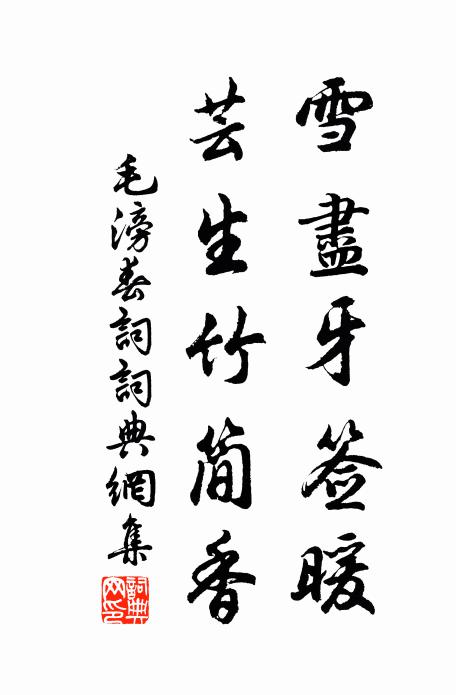 雪盡牙签暖
芸生竹简香
毛滂春詞詞典網集
詞典網印